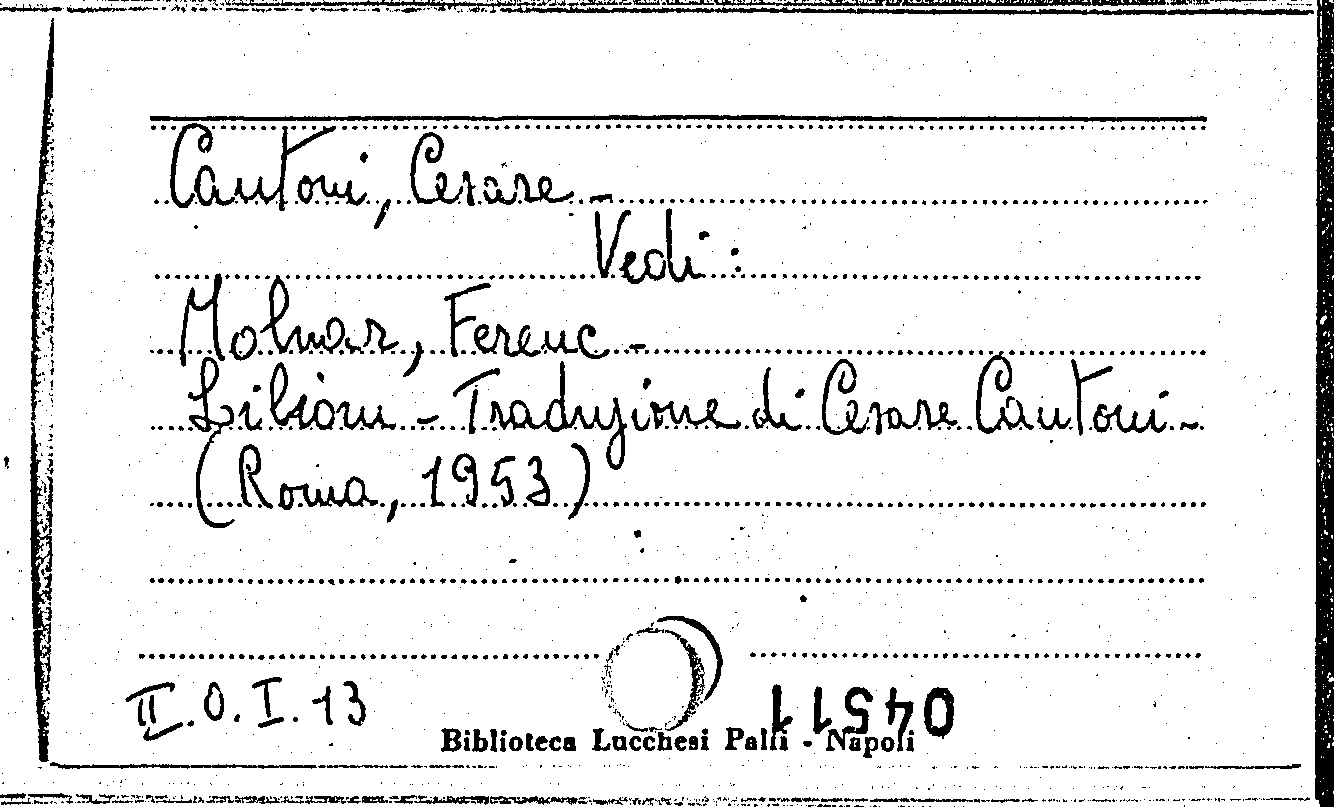 Cantoni, Cesare -
Vedi :
Molnar, Ferenc -
Liliom - Traduzione di Cesare Cantoni -
(Roma, 1953)
II.O.I.13
04511
Biblioteca Lucchesi Palli - Napoli